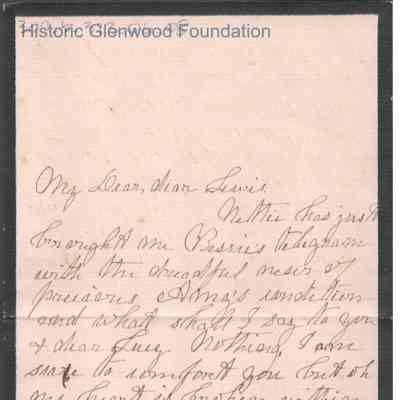 Historic Glenwood Foundation
My Dear, dear Lewis
Nettie has just
brought me Bessie's telegram
with the dreadful news of
precious Anna's condition
and what shall I say to you
& dear Lucy. Nothing, I am
sure to comfort you but oh
my heart is broken within